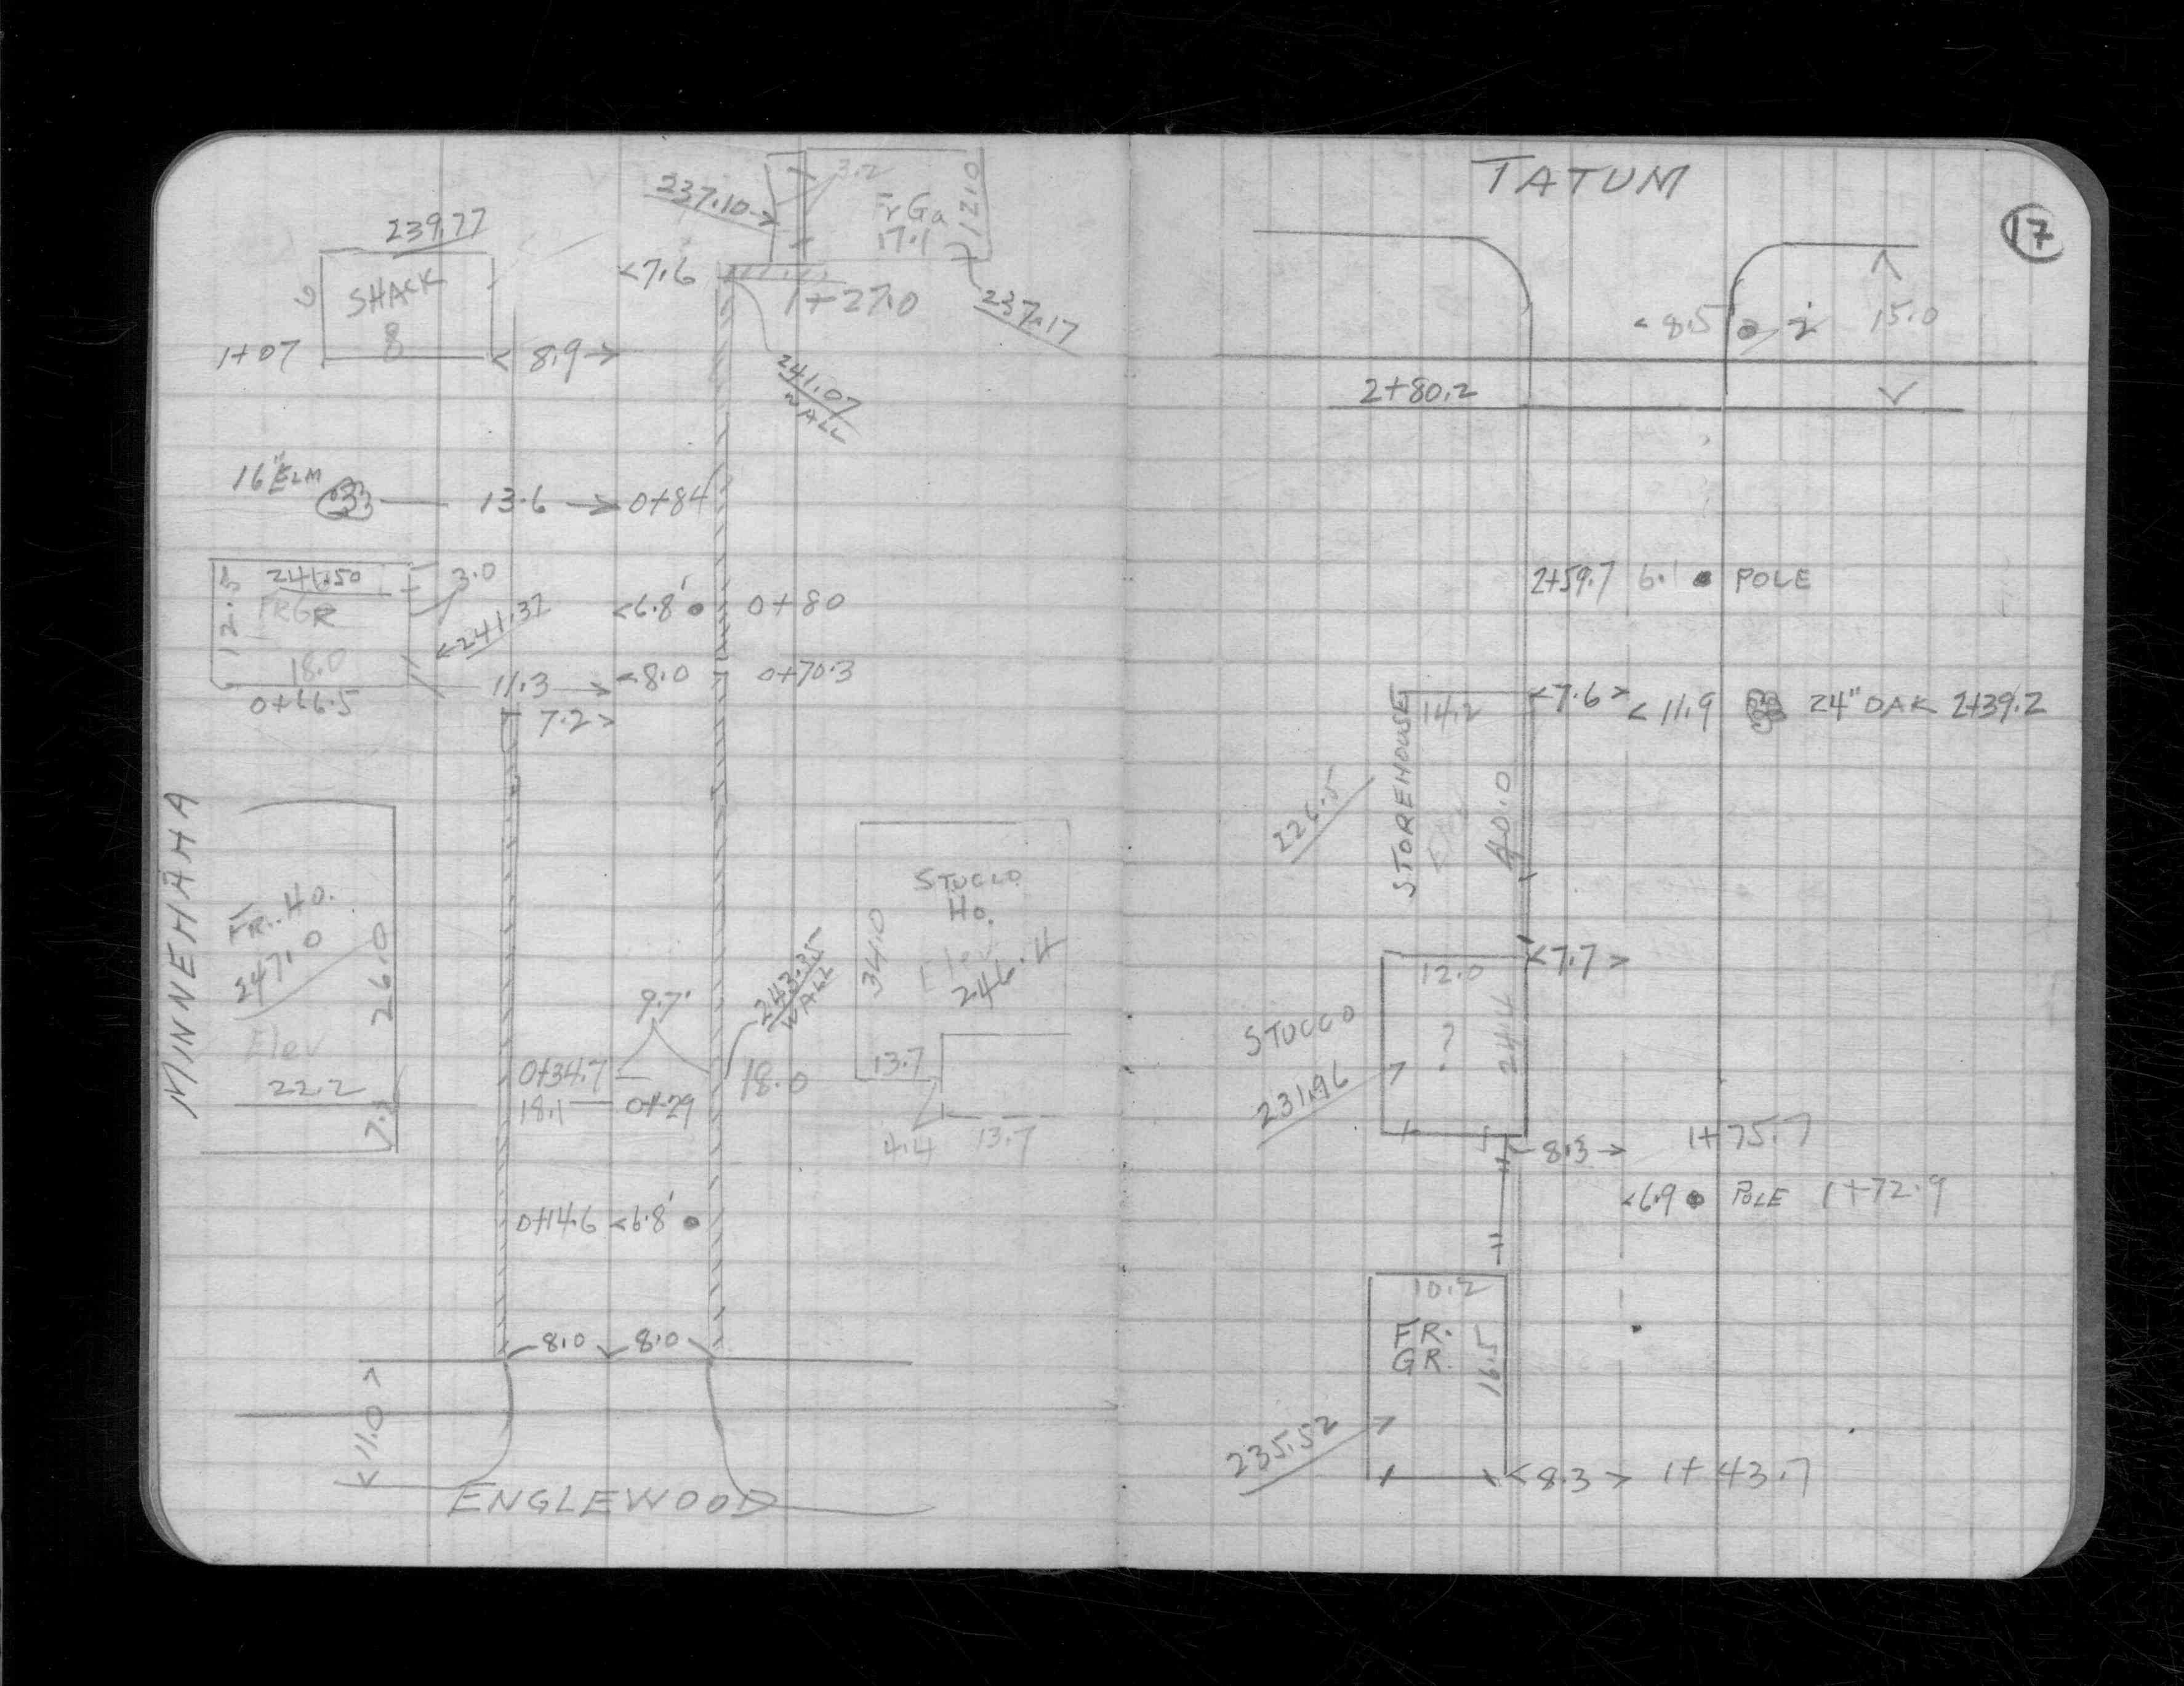 237.10
3.2
FrGa
17.1
12.0
239.77
SHACK
8
9
1+07
< 8.9 →
<7.6
1+27.0
237.17
241.07
WALL
16" ELM
13.6 → 0+84
12.3
241.50
FRGR
18.0
0+66.5
3.0
<6.8' 0+80
11.3 → <8.0 0+70.3
7.2 >
MINNEHAHA
FR. HO.
247.0
Elev
22.2
26.0
STUCCO
HO.
Elev
246.4
34.0
243.35
WALL
9.7'
0+34.7
18.0
13.7
18.1 0+29
4.4
13.7
0+14.6 <6.8'
8.0 8.0
<11.0>
ENGLEWOOD
TATUM
17
<8.5
15.0
2+80.2
2+59.7 6.1 POLE
STOREHOUSE
14.2
40.0
<7.6> <11.9 24" OAK 2+39.2
226.5
<7.7 >
12.0
?
STUCCO
231.96
8.3 → 1+75.7
<6.9 POLE 1+72.9
10.2
FR.
GR.
16.5
235.52
<8.3 > 1+43.7